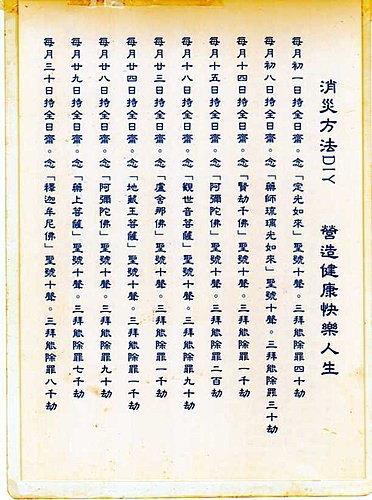 消災方法DIY　營造健康快樂人生
每月初一日持全日齋。念「定光如來」聖號十聲。三拜能除罪四十劫
每月初八日持全日齋。念「藥師琉璃光如來」聖號十聲。三拜能除罪三十劫
每月十四日持全日齋。念「賢劫千佛」聖號十聲。三拜能除罪一千劫
每月十五日持全日齋。念「阿彌陀佛」聖號十聲。三拜能除罪二百劫
每月十八日持全日齋。念「觀世音菩薩」聖號十聲。三拜能除罪九十劫
每月廿三日持全日齋。念「盧舍那佛」聖號十聲。三拜能除罪一千劫
每月廿四日持全日齋。念「地藏王菩薩」聖號十聲。三拜能除罪一千劫
每月廿八日持全日齋。念「阿彌陀佛」聖號十聲。三拜能除罪九十劫
每月廿九日持全日齋。念「藥上菩薩」聖號十聲。三拜能除罪七千劫
每月三十日持全日齋。念「釋迦牟尼佛」聖號十聲。三拜能除罪八千劫